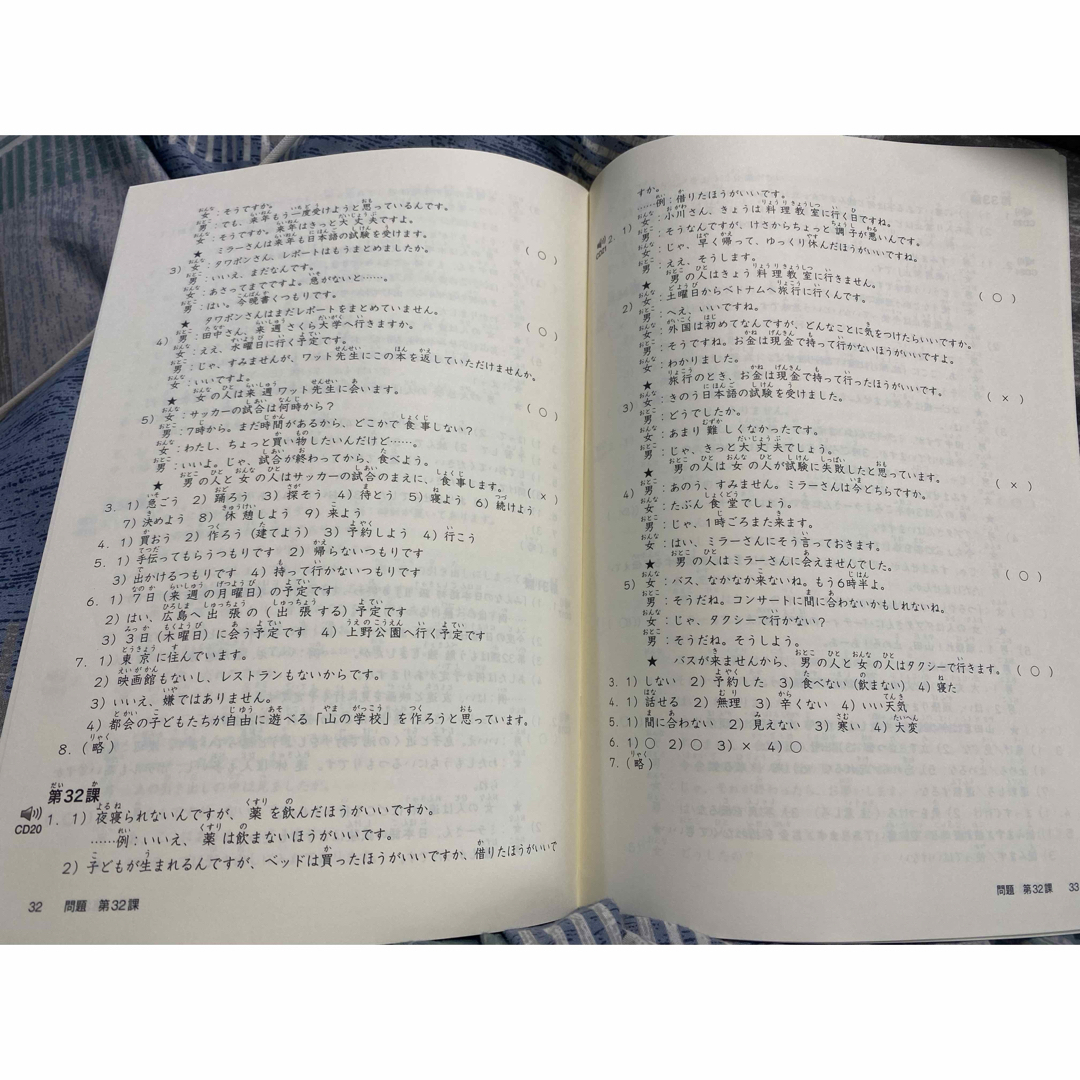 女：そうですか。
男：でも、来年もう一度受けようと思っているんです。
女：そうですか。来年はきっと大丈夫ですよ。
★ ミラーさんは来年も日本語の試験を受けます。（○）
3）女：タワポンさん、レポートはもうまとめましたか。
男：いいえ、まだなんです。
女：あさってまでですよ。急がないと……。
男：はい。今晩書くつもりです。
★ タワポンさんはまだレポートをまとめていません。（○）
4）男：田中さん、来週さくら大学へ行きますか。
女：ええ、水曜日に行く予定です。
男：じゃ、すみませんが、ワット先生にこの本を返していただけませんか。
女：いいですよ。
★ 女の人は来週ワット先生に会います。（○）
5）女：サッカーの試合は何時から？
男：7時から。まだ時間があるから、どこかで食事しない？
女：わたし、ちょっと買い物したいんだけど……。
男：いいよ。じゃ、試合が終わってから、食べよう。
★ 男の人と女の人はサッカーの試合のまえに、食事します。（×）
3. 1）急ごう 2）踊ろう 3）探そう 4）待とう 5）寝よう 6）続けよう
7）決めよう 8）休憩しよう 9）来よう
4. 1）買おう 2）作ろう（建てよう） 3）予約しよう 4）行こう
5. 1）手伝ってもらうつもりです 2）帰らないつもりです
3）出かけるつもりです 4）持って行かないつもりです
6. 1）7日（来週の月曜日）の予定です
2）はい、広島へ出張の（出張する）予定です
3）3日（木曜日）に会う予定です 4）上野公園へ行く予定です
7. 1）東京に住んでいます。
2）映画館もないし、レストランもないからです。
3）いいえ、嫌ではありません。
4）都会の子どもたちが自由に遊べる「山の学校」を作ろうと思っています。
8.（略）
第32課
CD20
1. 1）夜寝られないんですが、薬を飲んだほうがいいですか。
……例：いいえ、薬は飲まないほうがいいです。
2）子どもが生まれるんですが、ベッドは買ったほうがいいですか、借りたほうがいいで
32 問題 第32課
すか。
……例：借りたほうがいいです。
CD21
2. 1）女：小川さん、きょうは料理教室に行く日ですね。
男：そうなんですが、けさからちょっと調子が悪いんです。
女：じゃ、早く帰って、ゆっくり休んだほうがいいですね。
男：ええ、そうします。
★ 男の人はきょう料理教室に行きません。（○）
2）女：土曜日からベトナムへ旅行に行くんです。
男：へえ、いいですね。
女：外国は初めてなんですが、どんなことに気をつけたらいいですか。
男：そうですね。お金は現金で持って行かないほうがいいですよ。
女：わかりました。
★ 旅行のとき、お金は現金で持って行ったほうがいいです。（×）
3）女：きのう日本語の試験を受けました。
男：どうでしたか。
女：あまり難しくなかったです。
男：じゃ、きっと大丈夫でしょう。
★ 男の人は女の人が試験に失敗したと思っています。（×）
4）男：あのう、すみません。ミラーさんは今どちらですか。
女：たぶん食堂でしょう。
男：じゃ、1時ごろまた来ます。
女：はい、ミラーさんにそう言っておきます。
★ 男の人はミラーさんに会えませんでした。（○）
5）女：バス、なかなか来ないね。もう6時半よ。
男：そうだね。コンサートに間に合わないかもしれないね。
女：じゃ、タクシーで行かない？
男：そうだね。そうしよう。
★ バスが来ませんから、男の人と女の人はタクシーで行きます。（○）
3. 1）しない 2）予約した 3）食べない（飲まない） 4）寝た
4. 1）話せる 2）無理 3）辛くない 4）いい天気
5. 1）間に合わない 2）見えない 3）寒い 4）大変
6. 1）○ 2）○ 3）× 4）○
7.（略）
問題 第32課 33